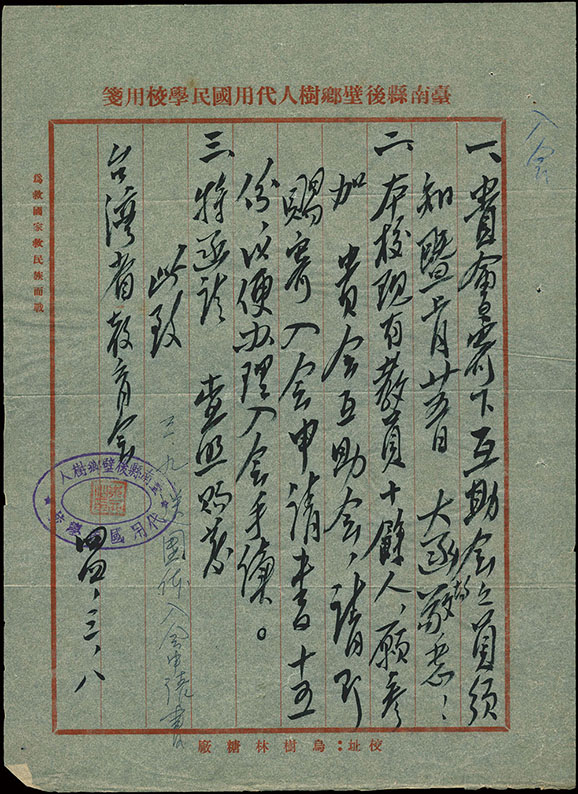 臺南縣後壁鄉樹人代用國民學校用箋
入会
一、貴會寄下互助会会員須
知暨二月廿五日　大函敬悉！
二、本校現有教員十餘人，願參
加　貴会互助会，請即
賜寄入会申請書十五
份，以便办理入会手續。
三、特函請　查照賜寄
此致
台湾省教育会
四四、三、八
三、九
入会申請書
臺南縣後壁鄉樹人
代用國
為救國家救民族而戰
校址：烏樹林糖廠